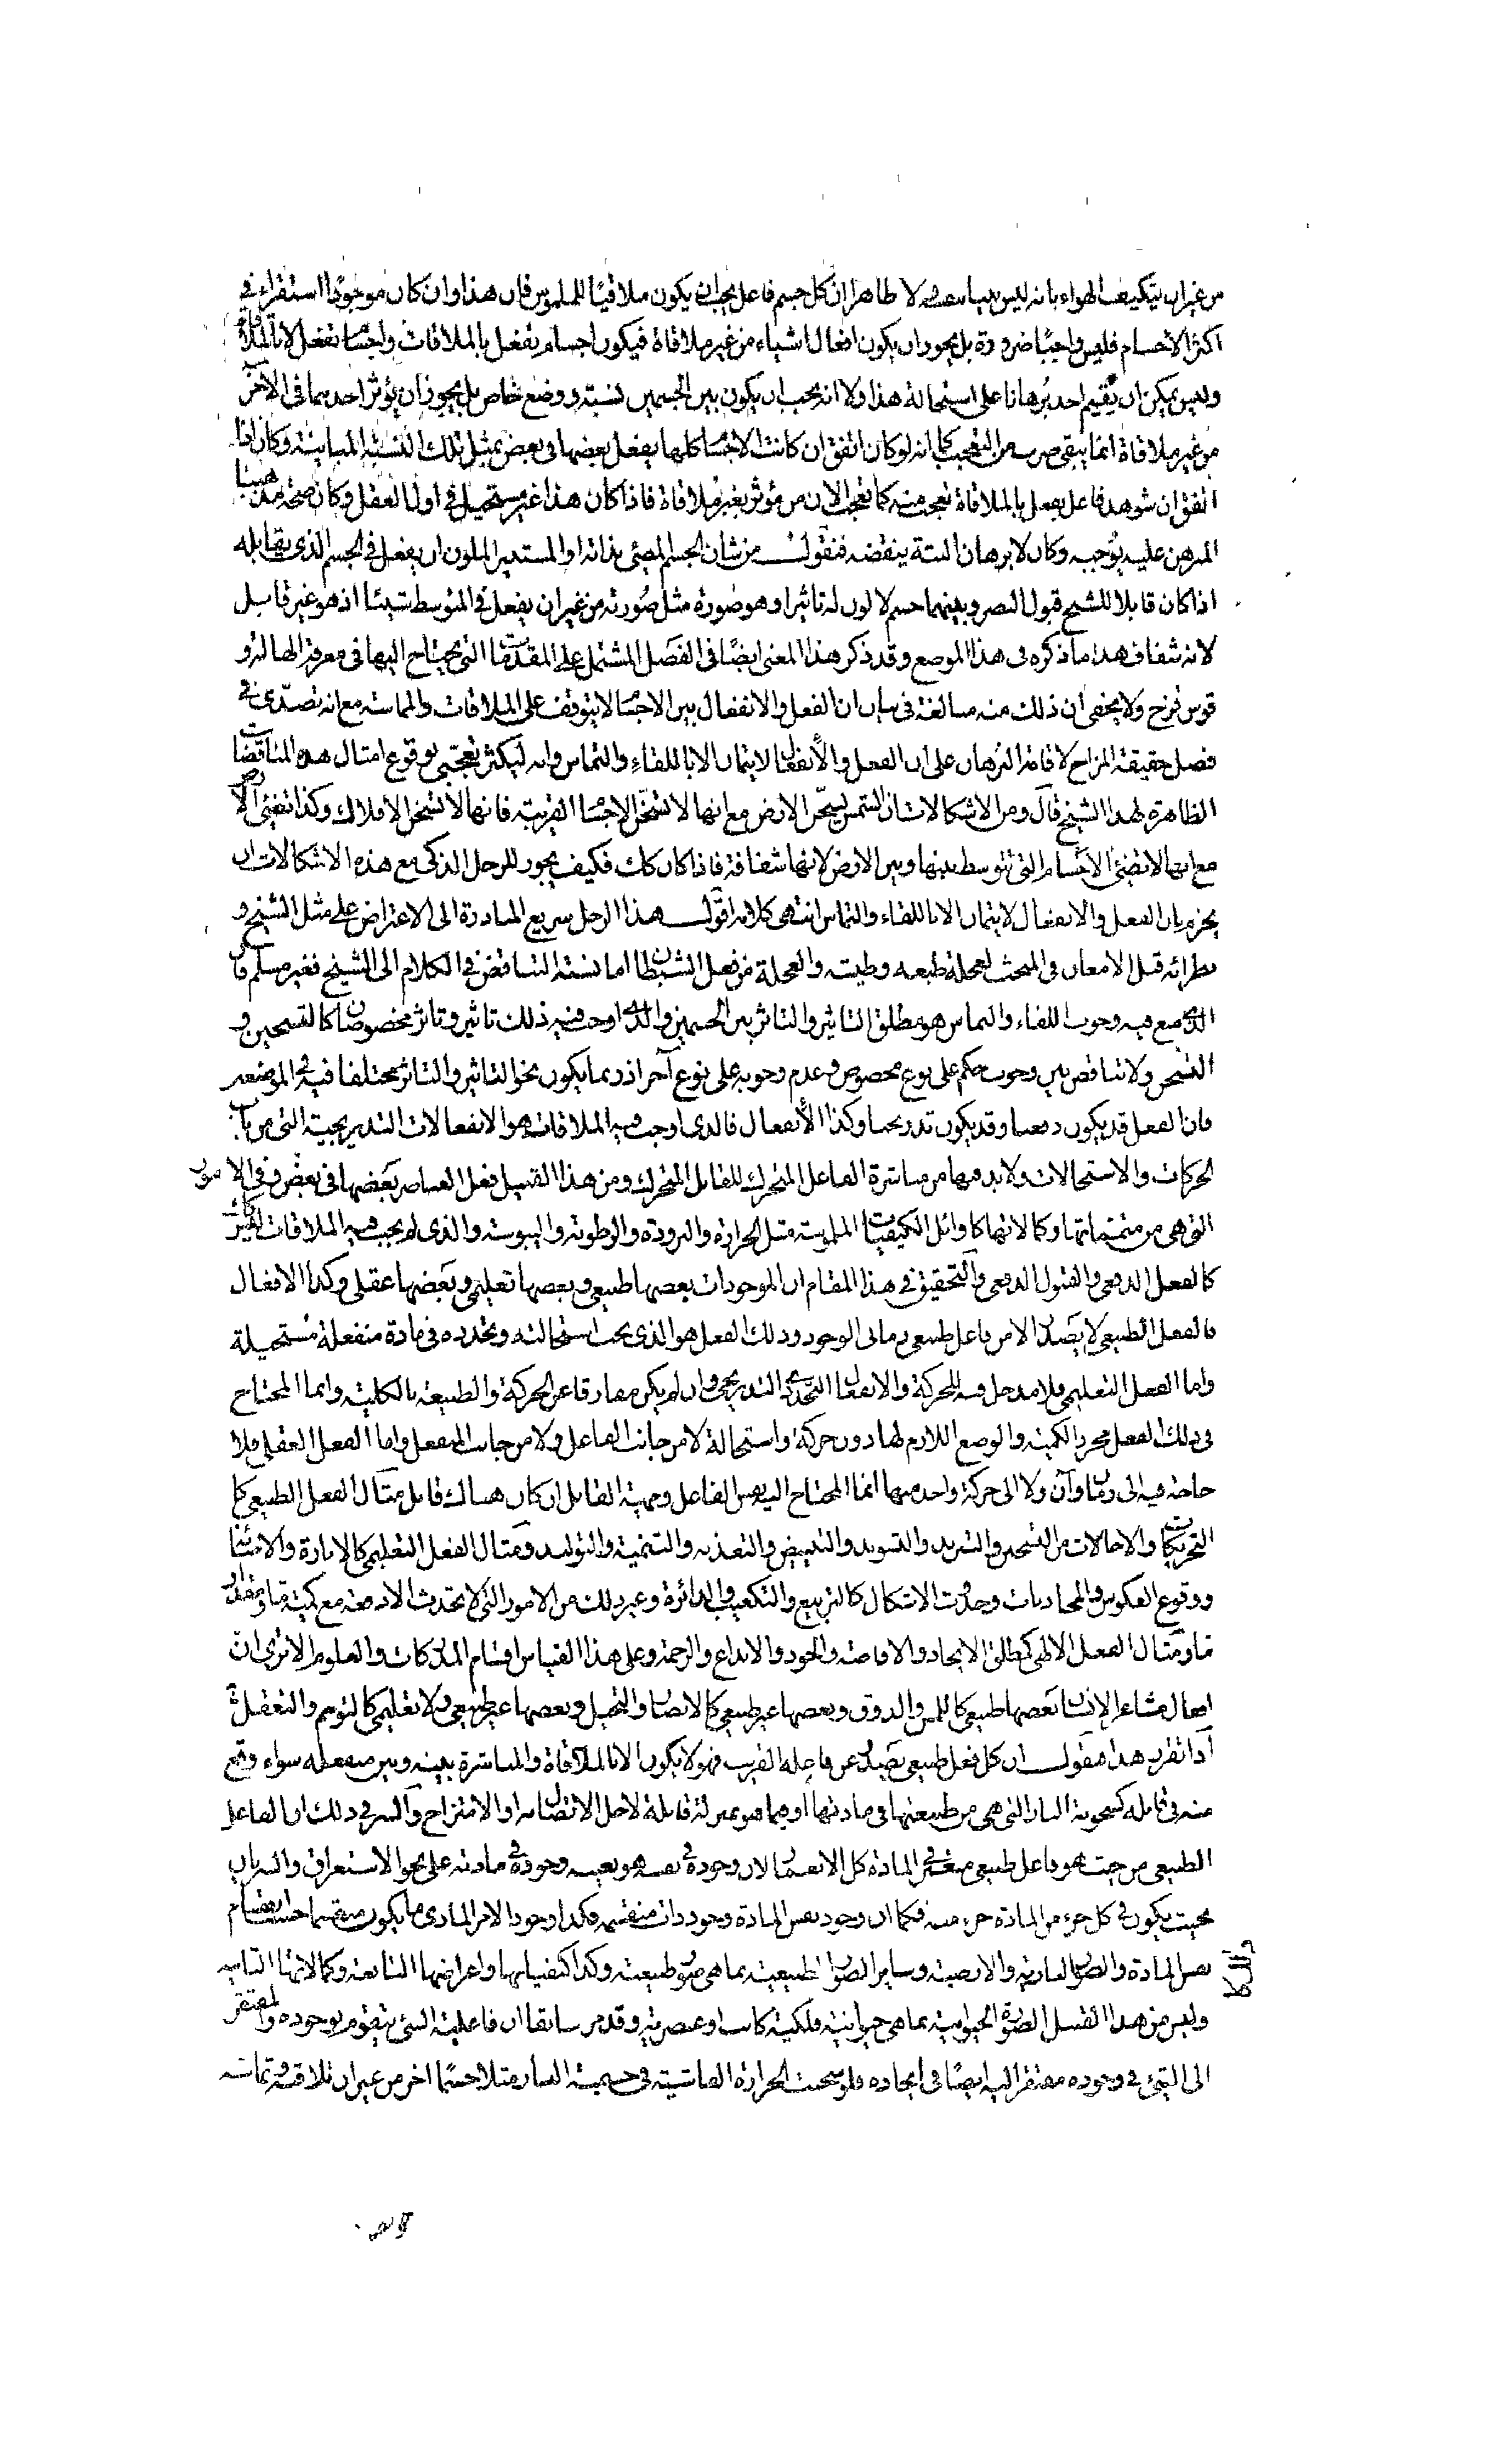 من غير ان يتكيف الهواء بانه ليس بينا بنفسه ولا ظاهرا ان كل جسم فاعل يجب ان يكون ملاقيا للملموس فان هذا وان كان موجودا استقراء في
اكثر الاجسام فليس واجبا ضرورة بل يجوز ان يكون افعال اشياء من غير ملاقاة فيكون اجسام تفعل بالملاقات واجسام تفعل لا بالملاقاة
وليس يمكن ان يقيم احد برهانا على استحالة هذا ولا انه يجب ان يكون بين الجسمين نسبة ووضع خاص بل يجوز ان يؤثر احدهما في الآخر
من غير ملاقاة انما يبقى ضرب من التعجب كما انه لو كان اتفق ان كانت الاجسام كلها يفعل بعضها في بعض بمثل تلك النسبة المباينة وكان اذا
اتفق ان شوهد فاعل يفعل بالملاقاة تعجب منه كما تعجب الان من مؤثر بغير ملاقاة فاذا كان هذا غير مستحيل في اول العقل وكان صحة مذهبنا
المبرهن عليه يوجبه وكان لا برهان البتة ينقضه فنقول من شان الجسم المضئ بذاته او المستنير الملون ان يفعل في الجسم الذى يقابله
اذا كان قابلا للشبح قبول البصر وبينهما جسم لا لون له تاثيرا وهو صورة مثل صورته من غير ان يفعل في المتوسط شيئا اذ هو غير قابل
لانه شفاف هذا ما ذكره في هذا الموضع وقد ذكر هذا المعنى ايضا في الفصل المشتمل على المقدمات التى يحتاج اليها في معرفة الهالة و
قوس قزح ولا يخفى ان ذلك منه مبالغة في بيان ان الفعل والانفعال بين الاجسام لا يتوقف على الملاقات والمماسة مع انه تصدى في
فصل حقيقة المزاج لاقامة البرهان على ان الفعل والانفعال لا يتمان الا باللقاء والتماس وانه ليكثر تعجبى بوقوع امثال هذه المناقضات
الظاهرة لهذا الشيخ قال ومن الاشكالات ان الشمس تسخن الارض مع انها لا تسخن الاجسام القريبة فانها لا تسخن الافلاك وكذا تضئ الارض
مع انها لا تضئ الاجسام التى تتوسط بينها وبين الارض لانها شفافة فاذا كان كك فكيف يجوز للرجل الذكى مع هذه الاشكالات ان
يجزم بان الفعل والانفعال لا يتمان الا باللقاء والتماس انتهى كلامه اقول هذا الرجل سريع المبادرة الى الاعتراض على مثل الشيخ و
نظرائه قبل الامعان في البحث لعجلة طبعه وطيشه والعجلة من فعل الشيطان اما نسبة التناقض في الكلام الى الشيخ فغير مسلم فان
الذى منع فيه وجوب اللقاء والتماس هو مطلق التاثير والتاثر بين الجسمين والذى اوجب فيه ذلك تاثير وتاثر مخصوصان كالتسخين و
التسخن ولا تناقض بين وجوب حكم على نوع مخصوص وعدم وجوبه على نوع آخر اذ ربما يكون نحو التاثير والتاثر مختلفا فيه في الموضعين
فان الفعل قد يكون دفعيا وقد يكون تدريجيا وكذا الانفعال فالذى اوجب فيه الملاقات هو الانفعالات التدريجية التى من باب
الحركات والاستحالات ولا بد فيها من مباشرة الفاعل المتحرك للقابل المتحرك ومن هذا القبيل فعل العناصر بعضها في بعض وفي الامور
التى هى من متمماتها وكمالاتها كاوائل الكيفيات الملموسة مثل الحرارة والبرودة والرطوبة واليبوسة والذى لم يجب فيه الملاقات ليس كذلك
كالفعل الدفعى والقبول الدفعى والتحقيق في هذا المقام ان الموجودات بعضها طبيعى وبعضها تعليمى وبعضها عقلى وكذا الافعال
فالفعل الطبيعى لا يصدر الا من فاعل طبيعى زمانى الوجود وذلك الفعل هو الذى يجب استحالته وتجدده في مادة منفعلة مستحيلة
واما الفعل التعليمى فلا مدخل فيه للحركة والانفعال التجددى التدريجى وان لم يكن مفارقا عن الحركة والطبيعة بالكلية وانما المحتاج
في ذلك الفعل مجرد الكمية والوضع اللازم لها دون حركة واستحالة لا من جانب الفاعل ولا من جانب المنفعل واما الفعل العقلى فلا
حاجة فيه الى زمان وآن ولا الى حركة واحد منهما انما المحتاج اليه نفس الفاعل ومهية القابل ان كان هناك قابل مثال الفعل الطبيعى كا
لتحريكات والاحالات من التسخين والتبريد والتسويد والتبييض والتغذية والتنمية والتوليد ومثال الفعل التعليمى كالانارة والاضائة
ووقوع العكوس والمحاذيات وحدوث الاشكال كالتربيع والتكعيب والدائرة وغير ذلك من الامور التى لا تحدث الا دفعة مع كمية ما ومقدار
ما ومثال الفعل الالهى كمطلق الايجاد والافاضة والجود والابداع والرحمة وعلى هذا القياس اقسام المدركات والعلوم الا ترى ان
افعال مشاعر الانسان بعضها طبيعى كاللمس والذوق وبعضها غير طبيعى كالابصار والتخيل وبعضها غير طبيعى ولا تعليمى كالتوهم والتعقل
اذا تقرر هذا فنقول ان كل فعل طبيعى يصدر عن فاعله القريب فهو لا يكون الا بالملاقاة والمباشرة بينه وبين منفعله سواء وقع
منه في قابله كسخونة النار التى هى من طبيعتها في مادتها او فيما هو بمنزلة قابله لاجل الاتصال به او الامتزاج والسر في ذلك ان الفاعل
الطبيعى من حيث هو فاعل طبيعى منغمر في المادة كل الانغمار لان وجوده في نفسه هو بعينه وجوده في مادته على نحو الاستغراق والسريان
بحيث يكون في كل جزء من المادة جزء منه فكما ان وجود نفس المادة وجود ذات منقسمه فكذا وجود الامر المادى ما يكون منقسما حسب انقسام
نفس المادة والصور النارية والارضية وساير الصور الطبيعية بما هى صور طبيعية وكذا كيفياتها واعراضها التابعة وكمالاتها الثانية
وليس من هذا القبيل الصورة الحيوانية بما هى حيوانية فلكية كانت او عنصرية وقد مر سابقا ان فاعلية الشئ يتقوم بوجوده والمفتقر
الى الشئ في وجوده مفتقر اليه ايضا في ايجاده فلو سخنت الحرارة الفاشية في جسمية النار مثلا جسما اخر من غير ان تلاقيه وتماسه